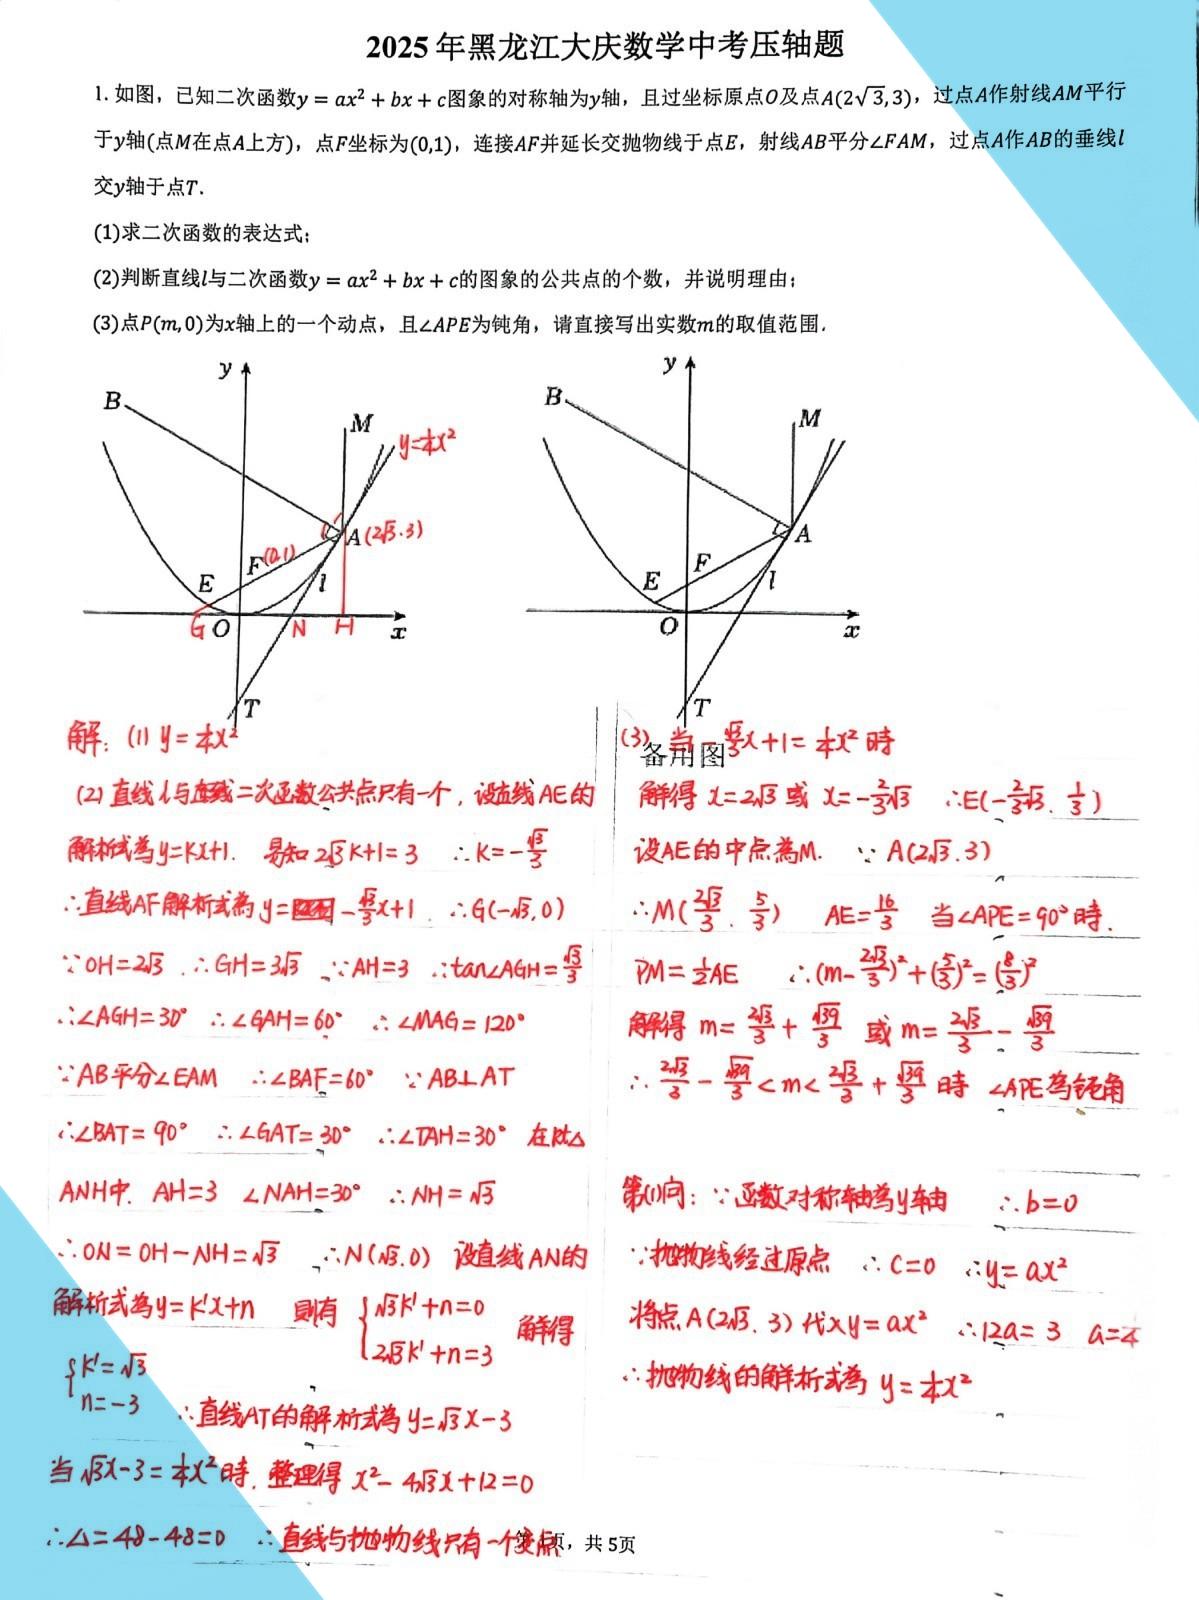 2025年黑龙江大庆数学中考压轴题
1. 如图，已知二次函数y = ax² + bx + c图象的对称轴为y轴，且过坐标原点O及点A(2√3, 3)，过点A作射线AM平行
于y轴(点M在点A上方)，点F坐标为(0,1)，连接AF并延长交抛物线于点E，射线AB平分∠FAM，过点A作AB的垂线l
交y轴于点T.
(1)求二次函数的表达式；
(2)判断直线l与二次函数y = ax² + bx + c的图象的公共点的个数，并说明理由；
(3)点P(m, 0)为x轴上的一个动点，且∠APE为钝角，请直接写出实数m的取值范围.
y
B
M
y=¼x²
A (2√3.3)
F (0,1)
E
l
G O N H x
T
y
B
M
A
F
E
l
O x
T
备用图
解：(1) y=¼x²
(2) 直线l与二次函数公共点只有一个，设直线AE的
解析式為y=kx+1. 易知2√3k+1=3 ∴k=-√3/3
∴直线AF解析式為y=-√3/3x+1. ∴G(-√3,0)
∵OH=2√3. ∴GH=3√3 ∵AH=3 ∴tan∠AGH=√3/3
∴∠AGH=30° ∴∠GAH=60° ∴∠MAG=120°
∵AB平分∠EAM ∴∠BAF=60° ∵AB⊥AT
∴∠BAT=90° ∴∠GAT=30° ∴∠TAH=30° 在Rt△
ANH中. AH=3 ∠NAH=30° ∴NH=√3
∴ON=OH-NH=√3 ∴N(√3.0) 设直线AN的
解析式為y=k'x+n 则有 {√3k'+n=0
2√3k'+n=3 解得
{k'=√3
n=-3 ∴直线AT的解析式為y=√3x-3
当√3x-3=¼x²時. 整理得 x²-4√3x+12=0
∴△=48-48=0 ∴直线与抛物线只有一个交点
(3) 当-√3/3x+1=¼x²時
解得 x=2√3 或 x=-2/3√3 ∴E(-2/3√3. 1/3)
设AE的中点為M. ∵A(2√3.3)
∴M(2√3/3. 5/3) AE=16/3 当∠APE=90°時.
PM=½AE ∴(m-2√3/3)²+(5/3)²=(8/3)²
解得 m=2√3/3+√39/3 或 m=2√3/3-√39/3
∴2√3/3-√39/3<m<2√3/3+√39/3 時 ∠APE為钝角
第(1)问：∵函数对称轴為y轴 ∴b=0
∵抛物线经过原点 ∴C=0 ∴y=ax²
将点A(2√3.3)代入y=ax² ∴12a=3 a=¼
∴抛物线的解析式為 y=¼x²
第1页，共5页